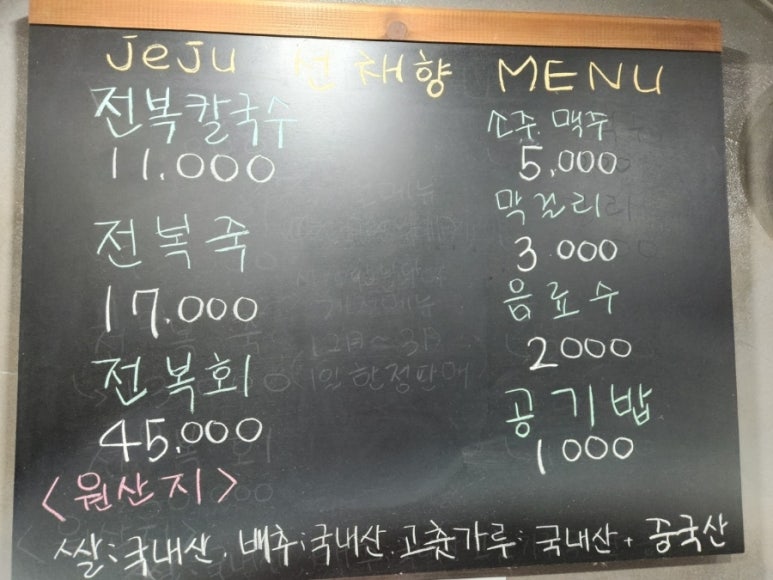 JeJu 선채향 MENU
전복칼국수
11.000
전복죽
17.000
전복회
45.000
소주.맥주
5.000
막걸리
3.000
음료수
2000
공기밥
1000
<원산지>
쌀:국내산. 배추:국내산. 고춧가루: 국내산+중국산